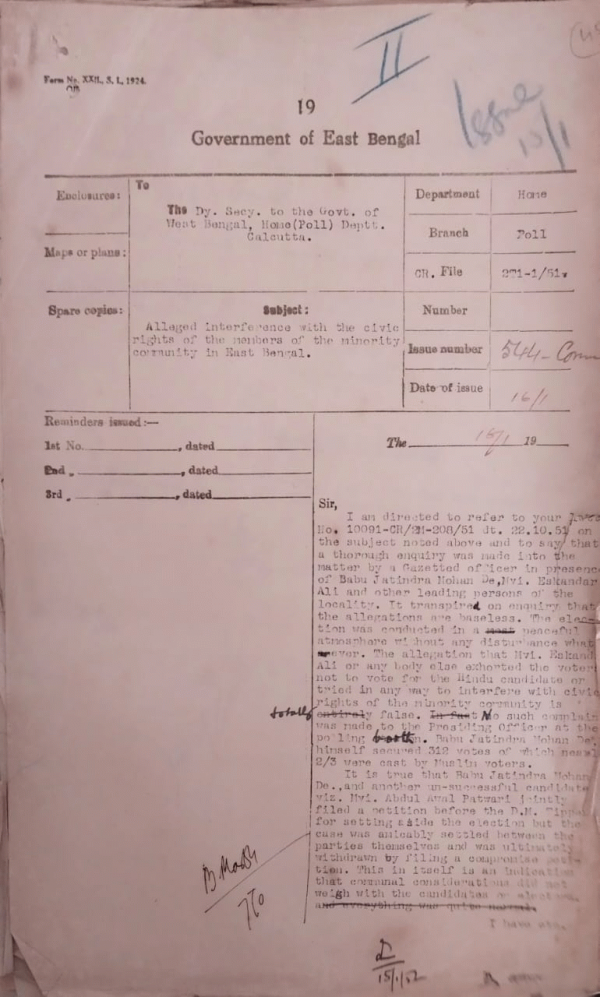 II
Form No. XXII, S. I., 1924.
Issue
15/1
19
Government of East Bengal
Enclosures:
To
The Dy. Secy. to the Govt. of
West Bengal, Home(Poll) Deptt.
Calcutta.
Department Home
Branch Poll
Maps or plans:
CR. File 271-1/51.
Spare copies:
Subject:
Alleged interference with the civic
rights of the members of the minority
community in East Bengal.
Number
Issue number 544-Conn
Date of issue 16/1
Reminders issued:—
1st No. , dated
2nd „ , dated
3rd „ , dated
The 16/1 19
Sir,
I am directed to refer to your
No. 10091-CR/2M-208/51 dt. 22.10.51 on
the subject noted above and to say that
a thorough enquiry was made into the
matter by a Gazetted officer in presence
of Babu Jatindra Mohan De, Mvi. Eskandar
Ali and other leading persons of the
locality. It transpired on enquiry that
the allegations are baseless. The elec-
tion was conducted in a most peaceful
atmosphere without any disturbance what
ever. The allegation that Mvi. Eskand
Ali or any body else exhorted the voter
not to vote for the Hindu candidate or
tried in any way to interfere with civic
rights of the minority community is
totally
entirely false. In fact No such complain
was made to the Presiding Officer at the
polling booth. Babu Jatindra Mohan De
himself secured 312 votes of which near
2/3 were cast by Muslim voters.
It is true that Babu Jatindra Mohan
De., and another un-successful candidate
viz. Mvi. Abdul Awal Patwari jointly
filed a petition before the D.M. Tippe
for setting aside the election but the
case was amicably settled between the
parties themselves and was ultimately
withdrawn by filing a compromise peti-
tion. This in itself is an indication
that communal considerations did not
weigh with the candidates or
and everything was quite normal.
I have etc.
15/1/52